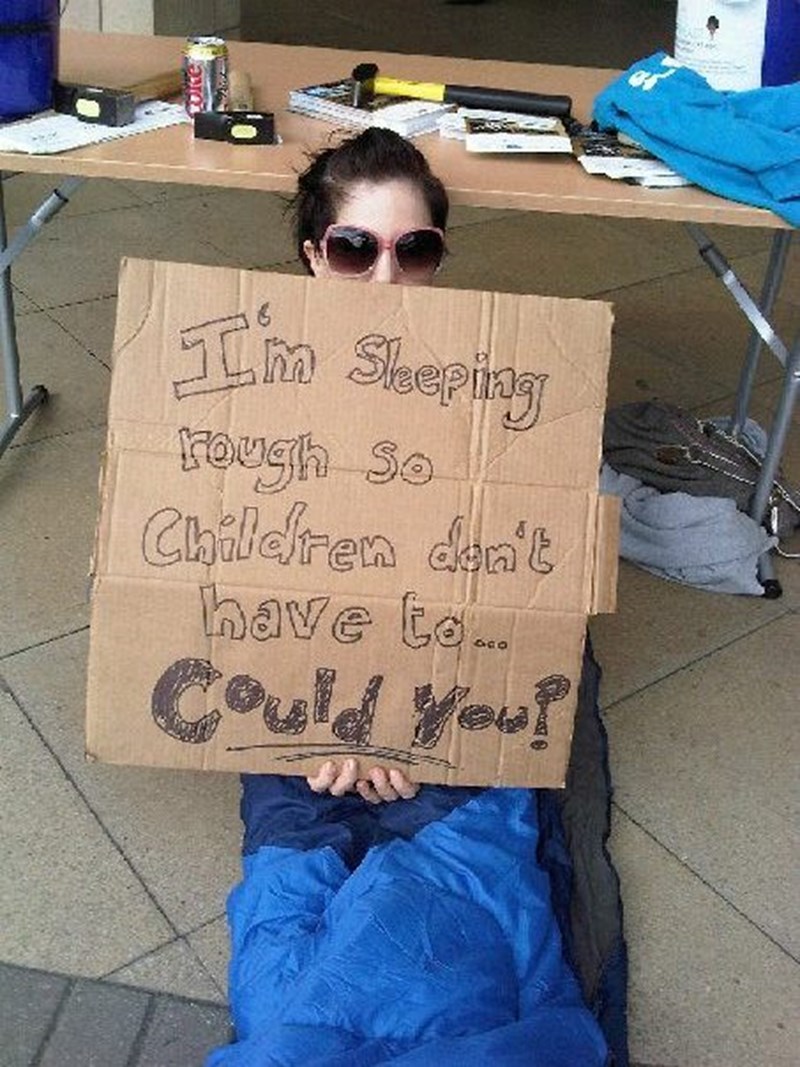 Coke
I'm Sleeping
rough so
Children don't
have to...
Could You?